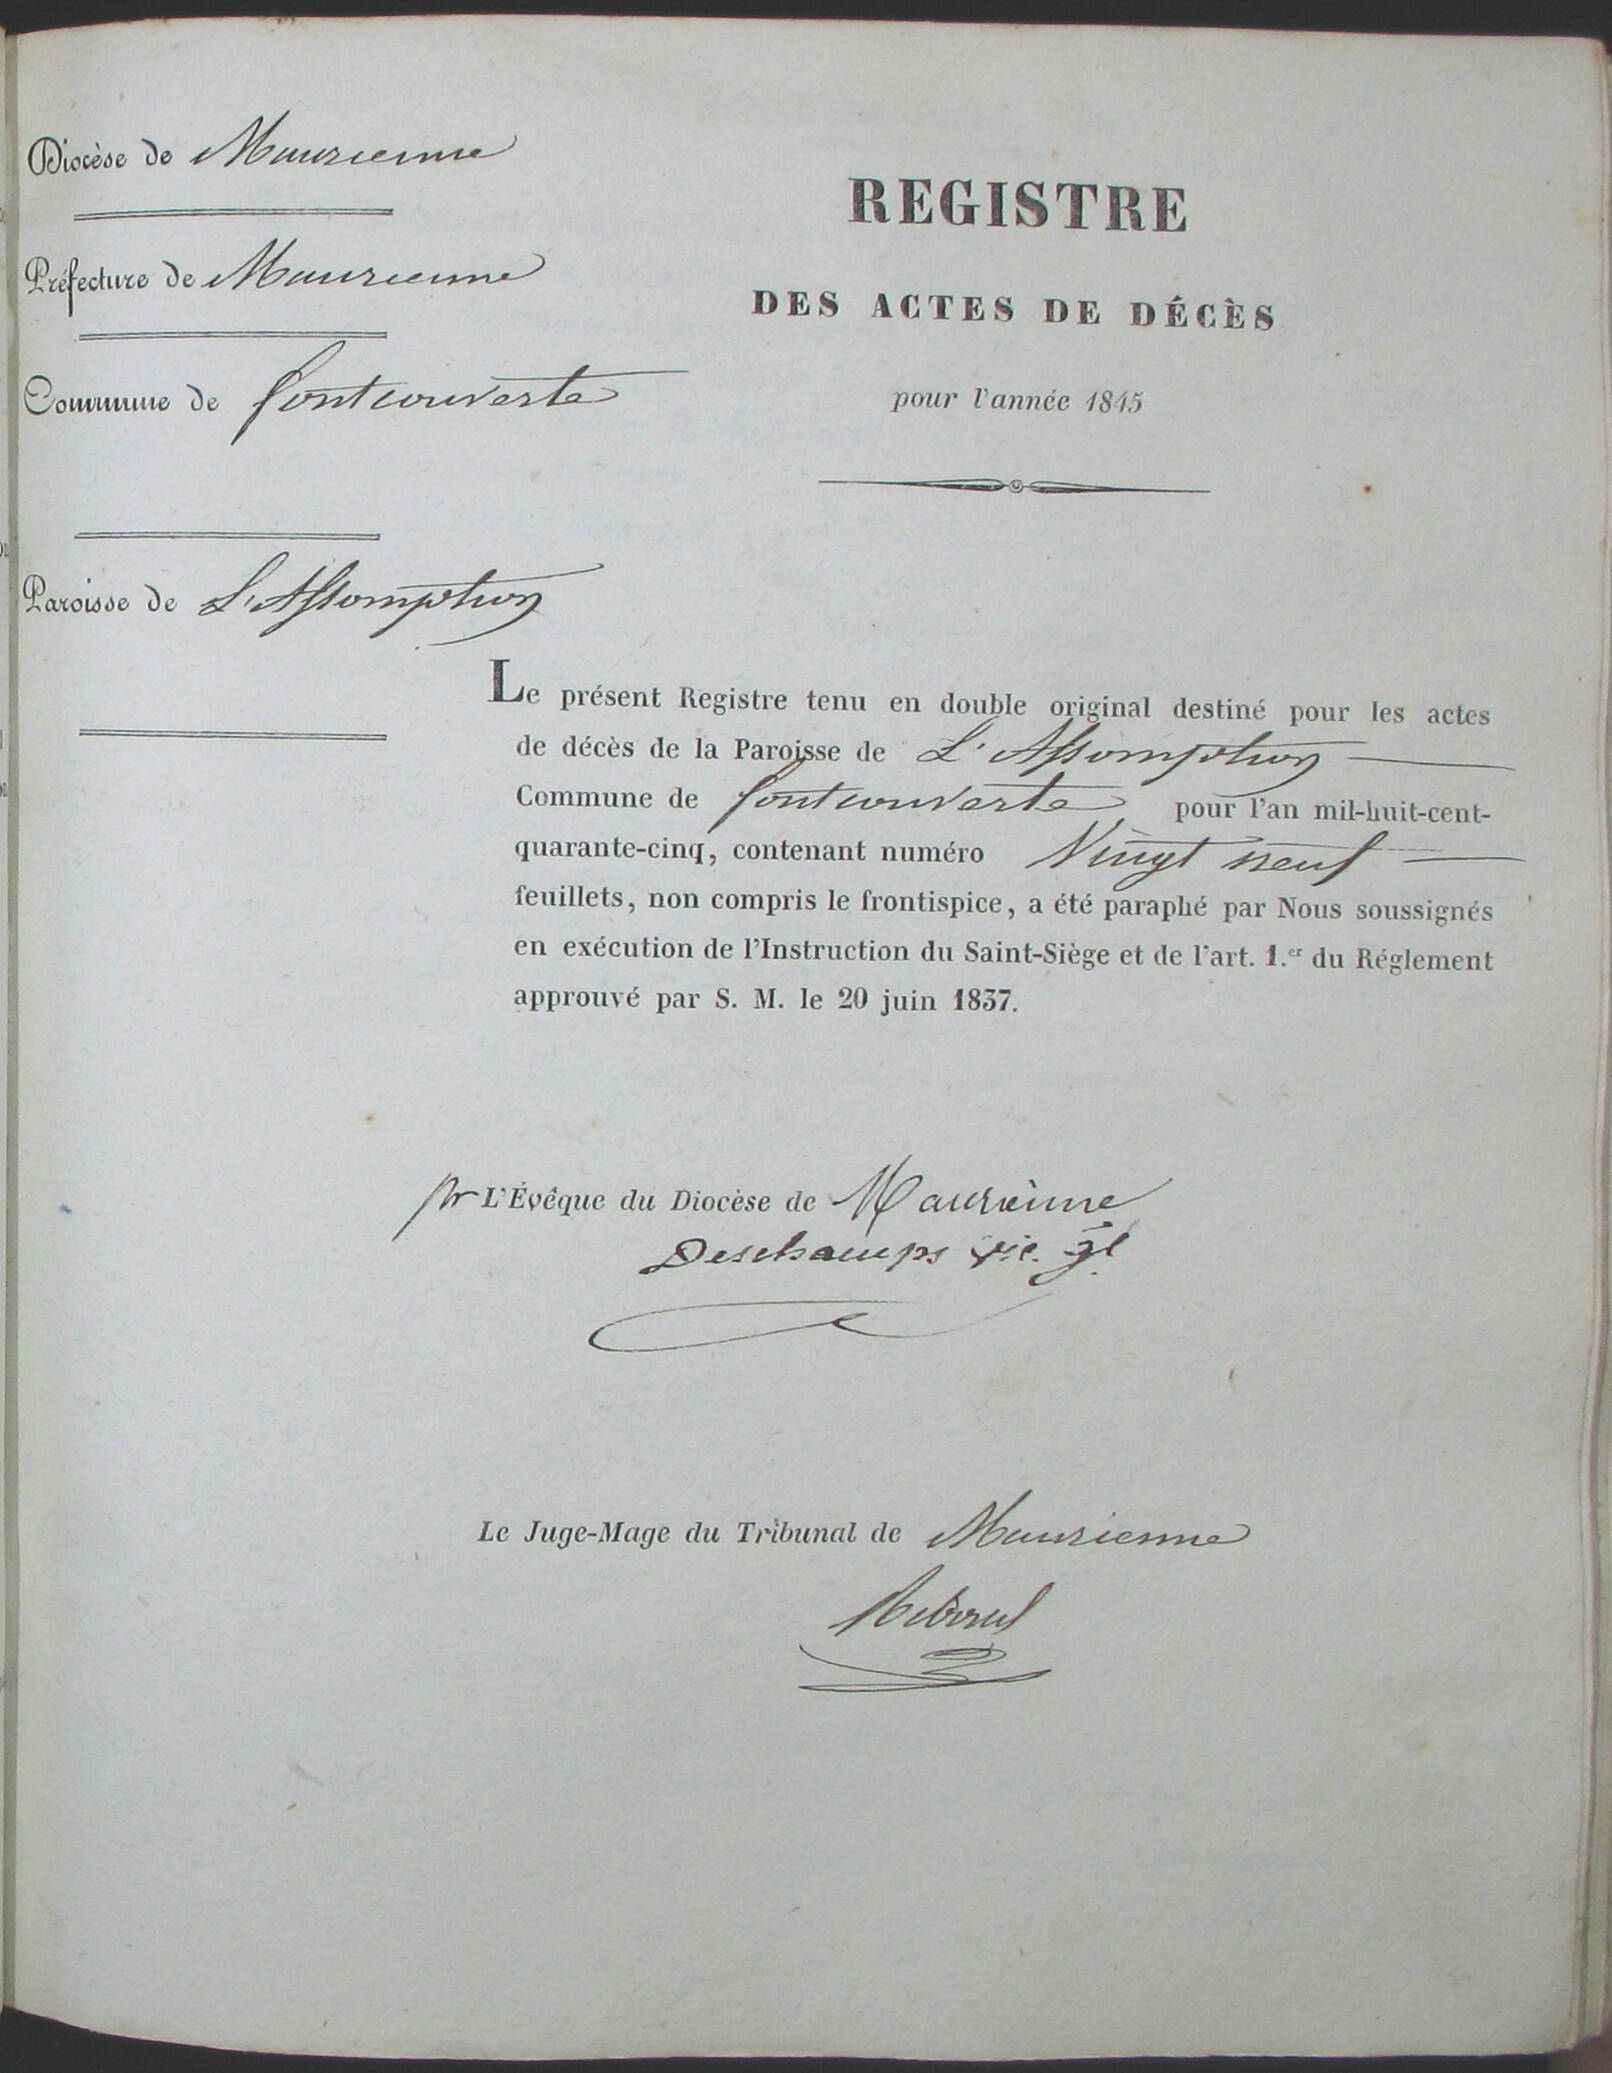 Diocèse de Maurienne
Préfecture de Maurienne
Commune de fontcouverte
Paroisse de L'Assomption
REGISTRE
DES ACTES DE DÉCÈS
pour l'année 1845
Le présent Registre tenu en double original destiné pour les actes
de décès de la Paroisse de L'Assomption
Commune de fontcouverte pour l'an mil-huit-cent-
quarante-cinq, contenant numéro Vingt neuf
feuillets, non compris le frontispice, a été paraphé par Nous soussignés
en exécution de l'Instruction du Saint-Siège et de l'art. 1.er du Réglement
approuvé par S. M. le 20 juin 1837.
pr L'Évêque du Diocèse de Maurienne
Deschamps vic. gl.
Le Juge-Mage du Tribunal de Maurienne